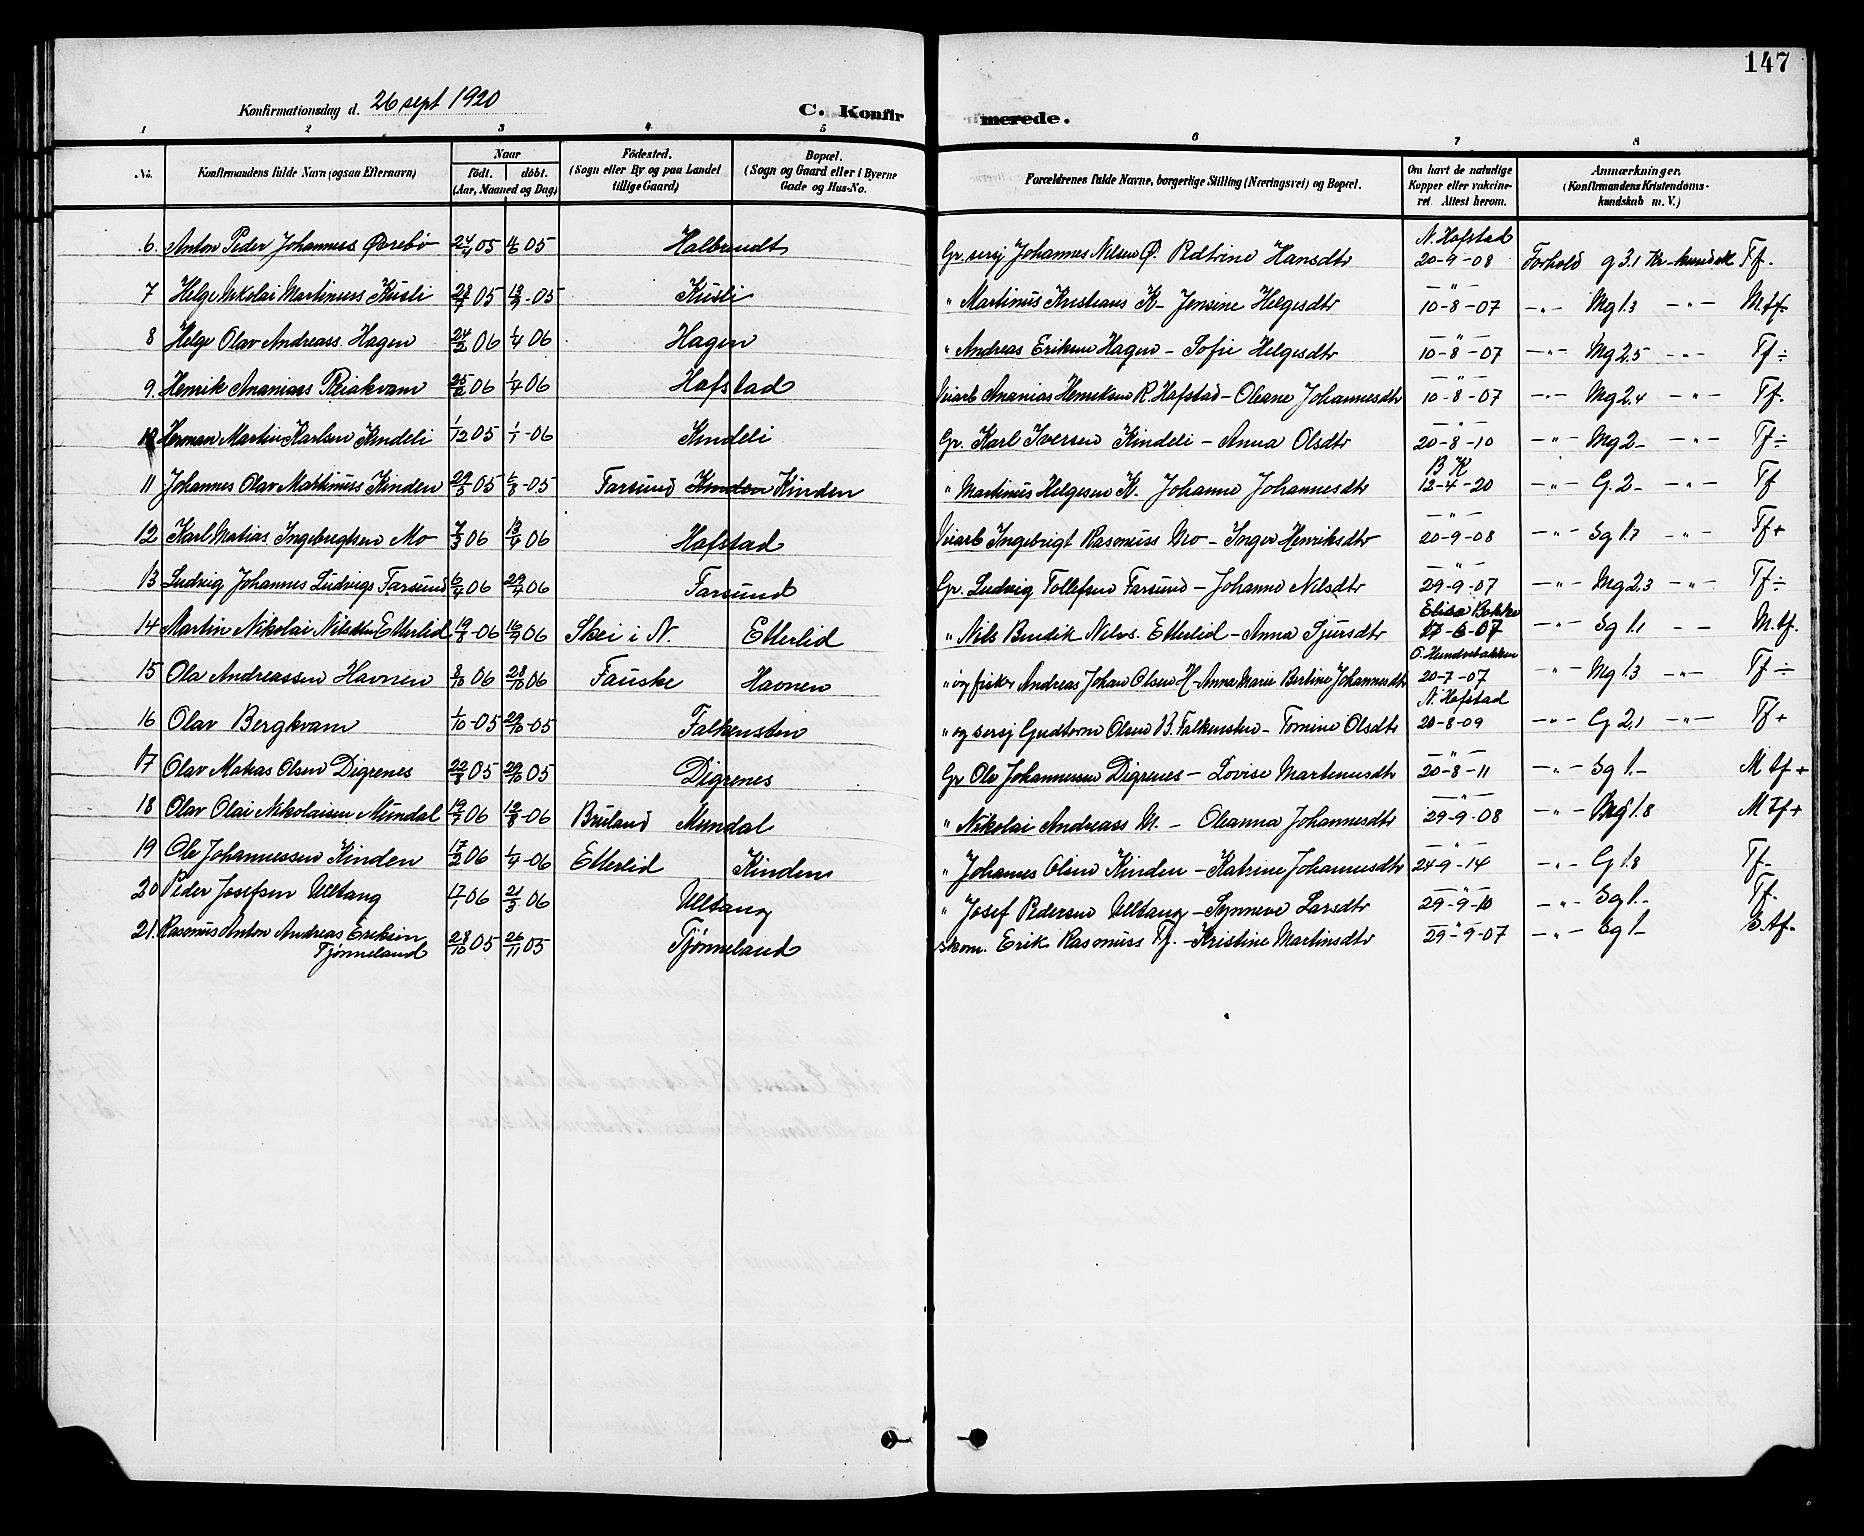 147
Konfirmationsdag d. 26 sept 1920
C. Konfirmerede.
1 2 3 4 5 6 7 8
No. Konfirmandens fulde Navn (ogsaa Efternavn) Naar født. døbt. (Aar, Maaned og Dag) Födested. (Sogn eller By og paa Landet tillige Gaard) Bopæl. (Sogn og Gaard eller i Byerne Gade og Hus-No. Forældrenes fulde Navne, borgerlige Stilling (Næringsvei) og Bopæl. Om havt de naturlige Kopper eller vakcineret Attest herom. Anmærkninger. (Konfirmandens Kristendomskundskab m. V.)
6. Anton Peder Johanness Øvrebø 24/4 05 4/6 05 Halbrendt Gr. sersj Johannes Nilsen Ø. Hansdtr N. Hofstad 20-9-08 Forhold g 3.1 Kr-kundsk Tf.
7 Helge Nikolai Martinuss Kusli 05 05 Kusli " Martinus Kristians K- Jensine Helgesdtr -"- 10-8-07 -"- Mg 1.3 -"- M.tf-
8 Helge Olav Andreass. Hagen 24/2 06 1/4 06 Hagen " Andreas Eriksen Hagen - Sofie Helgesdtr -"- 10-8-07 -"- Mg 2.5 -"- Tf ÷
9. Henrik Ananiass Reiakvam 25/2 06 1/4 06 Hofstad Veiarb Ananias Henriksen R. Hofstad - Oleane Johannesdtr -"- 10-8-07 -"- Mg 2.4 -"- Tf.
10 Herman Martin Karlsen Kindeli 1/12 05 1/1-06 Kindeli Gr. Karl Iversen Kindeli - Anna Olsdtr -"- 20-8-10 -"- Mg 2- -"- Tf ÷
11 Johannes Olav Martinuss Kinden 05 05 Farsund Kinden Kinden " Martinus Helgesen K. Johanne Johannesdtr B K 12-4-20 -"- G. 2- -"- Tf
12 Karl Matias Ingebrigtsen Mo 7/3 06 06 Hofstad Veiarb Ingebrigt Rasmuss Mo - Inger Henriksdtr -"- 20-9-08 -"- Sg 1.7 -"- Tf+
13 Ludvig Johannes Ludvigs Farsund 06 29/4 06 Farsund Gr. Ludvig Tollefsen Farsund - Johanne Nilsdtr -"- 29-9-07 -"- Mg 2.3 -"- Tf ÷
14 Martin Nikolai Nilssen Etterlid 06 06 Skei i N. Etterlid " Nils Bendik Nilss. Etterlid - Anna Sjursdtr 17-6-07 -"- Sg 1.1 - - M.tf.
15 Ola Andreassen Havnen 8/10 06 28/10 06 Fauske Havnen " og fisker Andreas Johan Olsen H- Anna Marie Bertine Johannesdtr O. Hundsebakken 20-7-07 " - Mg 1.3 -"- Tf ÷
16 Olav Bergkvam 1/10-05 29/10-05 Falkensten " og sersj Gudtorm Olsen B. Falkensten - Tomine Olsdtr N. Hofstad 20-8-09 -"- G 2.1 -"- Tf+
17 Olav Olsen Digrenes 22/8 05 29/10 05 Digrenes Gr Ole Johannessen Digrenes - Lovise Martinusdtr -"- 20-8-11 -"- Sg 1.- M tf+
18 Olav Olai Nikolaisen Mundal 06 06 Bruland Mundal " Nikolai Andreass M. - Oleanna Johannesdtr -"- 29-9-08 -"- Mg 1.8 M Tf+
19 Ole Johannessen Kinden 17/2 06 1/4-06 Etterlid Kinden " Johannes Olsen Kinden - Katrine Johannesdtr -"- 24-9-14 -"- G 1.8 Tf-
20 Peder Josefsen Ulltang 06 21/3 06 Ulltang " Josef Pedersen Ulltang - Synneve Larsdtr -"- 29-9-10 -"- Sg 1.- Tf.
21. Rasmus Anton Andreas Eriksen Tjønneland 28/10 05 26/11 05 Tjønneland Skom. Erik Rasmuss Tj. - Kristine Martinsdtr -"- 29-9-07 -"- Sg 1- tf-